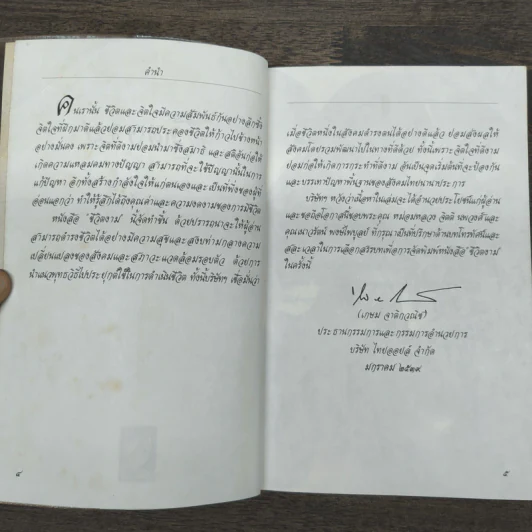 คำนำ
คนเรานั้น ชีวิตและจิตใจมีความสัมพันธ์กันอย่างลึกซึ้ง
จิตใจที่ฝึกมาดีแล้วย่อมสามารถประคองชีวิตให้ก้าวไปข้างหน้า
อย่างมั่นคง เพราะจิตที่ดีงามย่อมนำมาซึ่งสมาธิ และสติอันก่อให้
เกิดความแหลมคมทางปัญญา สามารถที่จะใช้ปัญญานั้นในการ
แก้ปัญหา อีกทั้งสร้างกำลังใจให้แก่ตนเองและเป็นที่พึ่งของผู้ที่
อ่อนแอกว่า ทำให้รู้สึกได้ถึงคุณค่าและความงดงามของการมีชีวิต
หนังสือ 'ชีวิตงาม' นี้จัดทำขึ้น ด้วยปรารถนาจะให้ผู้อ่าน
สามารถดำรงชีวิตได้อย่างมีความสุขและสงบท่ามกลางความ
เปลี่ยนแปลงของสังคมและสภาวะแวดล้อมรอบตัว ด้วยการ
นำแนวพุทธวิธีไปประยุกต์ใช้ในการดำเนินชีวิต ทั้งนี้บริษัทฯ เชื่อมั่นว่า
๔
เมื่อชีวิตหนึ่งในสังคมดำรงตนได้อย่างดีแล้ว ย่อมส่งผลให้
สังคมโดยรวมพัฒนาไปในทางที่ดีด้วย ทั้งนี้เพราะจิตใจที่ดีงาม
ย่อมก่อให้เกิดการกระทำที่ดีงาม อันเป็นจุดเริ่มต้นที่จะป้องกัน
และบรรเทาปัญหาพื้นฐานของสังคมไทยนานาประการ
บริษัทฯ หวังว่าเนื้อหาในเล่มจะได้อำนวยประโยชน์แก่ผู้อ่าน
และขอถือโอกาสนี้ขอบพระคุณ หม่อมหลวง จิตติ นพวงศ์ และ
คุณเนาวรัตน์ พงษ์ไพบูลย์ ที่กรุณาเป็นที่ปรึกษาด้านบทโทรทัศน์และ
สละเวลาในการเลือกสรรบทเพื่อการจัดพิมพ์หนังสือ 'ชีวิตงาม'
ในครั้งนี้
(เกษม จาติกวณิช)
ประธานกรรมการและกรรมการอำนวยการ
บริษัท ไทยออยล์ จำกัด
มกราคม ๒๕๓๙
๕